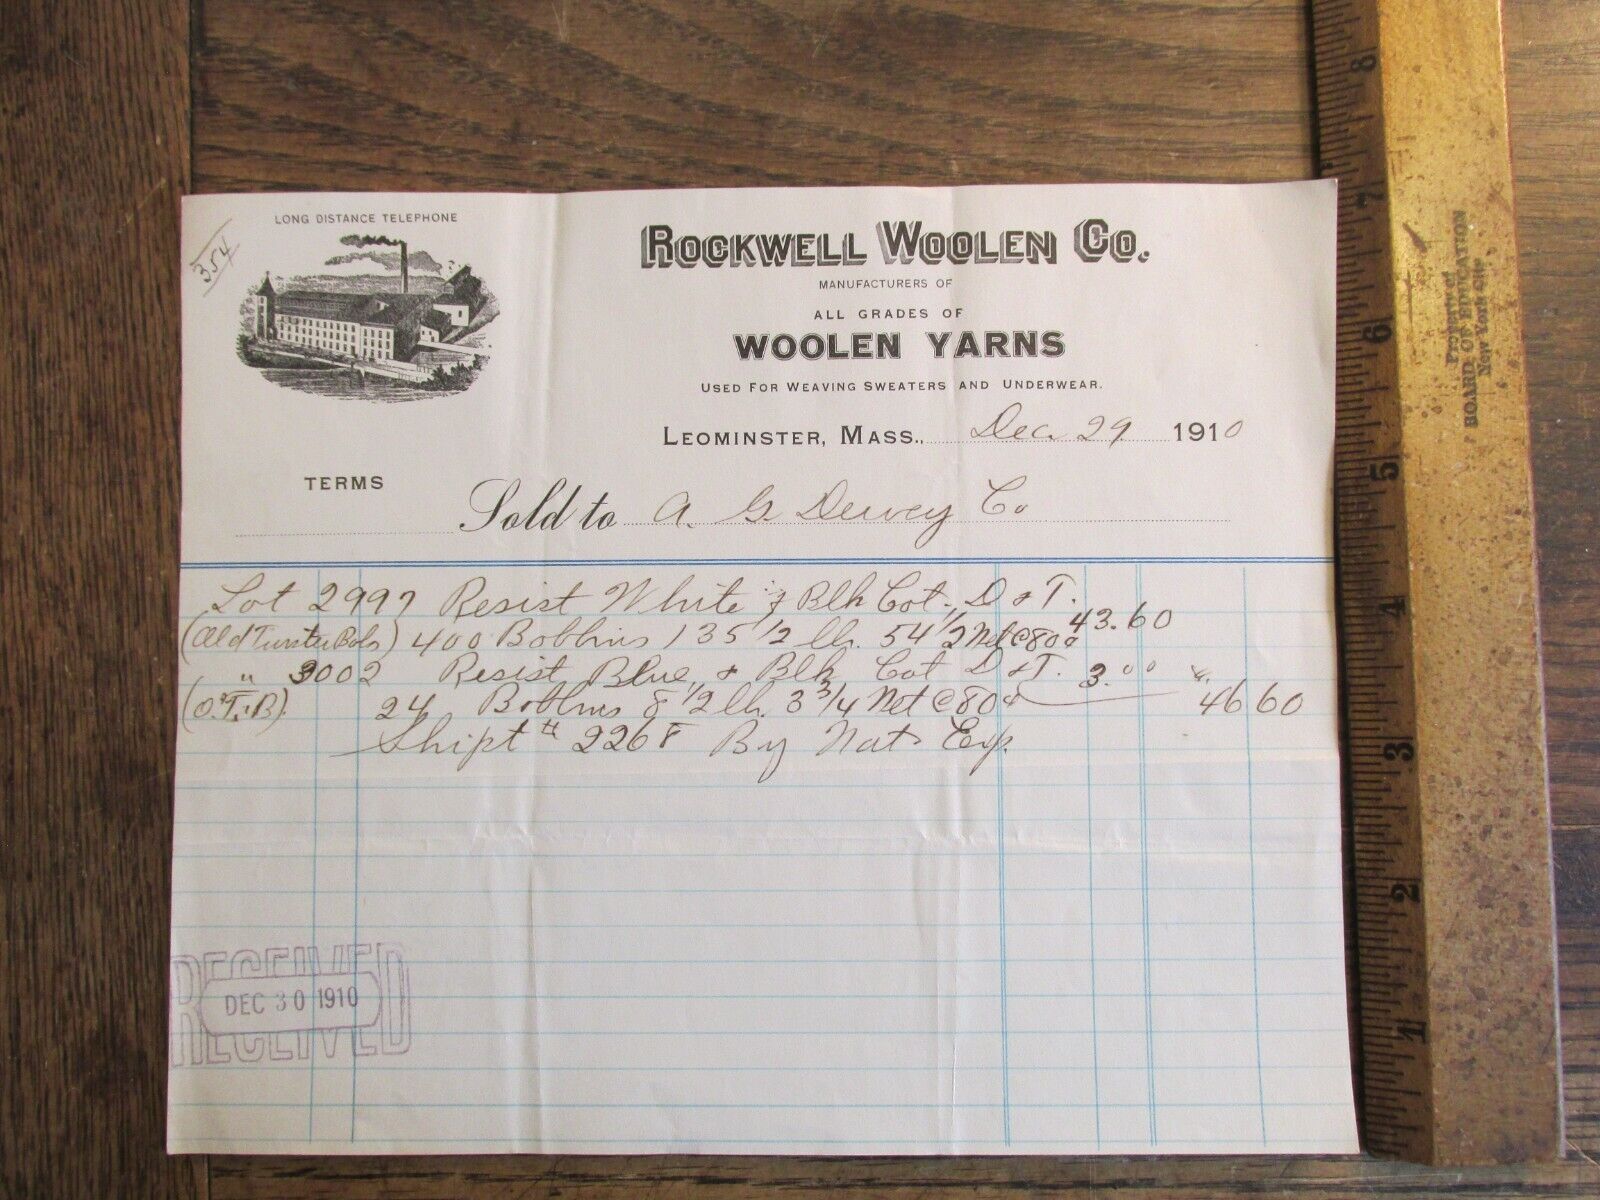 354
LONG DISTANCE TELEPHONE
ROCKWELL WOOLEN CO.
MANUFACTURERS OF
ALL GRADES OF
WOOLEN YARNS
USED FOR WEAVING SWEATERS AND UNDERWEAR.
LEOMINSTER, MASS., Dec. 29 1910
TERMS
Sold to A. G. Dewey Co
Lot 2997 Resist White & Blk Cot. D & T.
(Old Twister Bobs) 400 Bobbins 135 1/2 lb. 54 1/2 Net @ 80¢ 43.60
" 3002 Resist Blue & Blk Cot D & T. 3.00
(O.T.B). 24 Bobbins 8 1/2 lb. 3 3/4 Net @ 80¢ 46 60
Shipt # 2268 By Nat Exp.
RECEIVED
DEC 30 1910
RECEIVED
8
7
6
5
4
3
2
1
Property of
BOARD OF EDUCATION
New York City